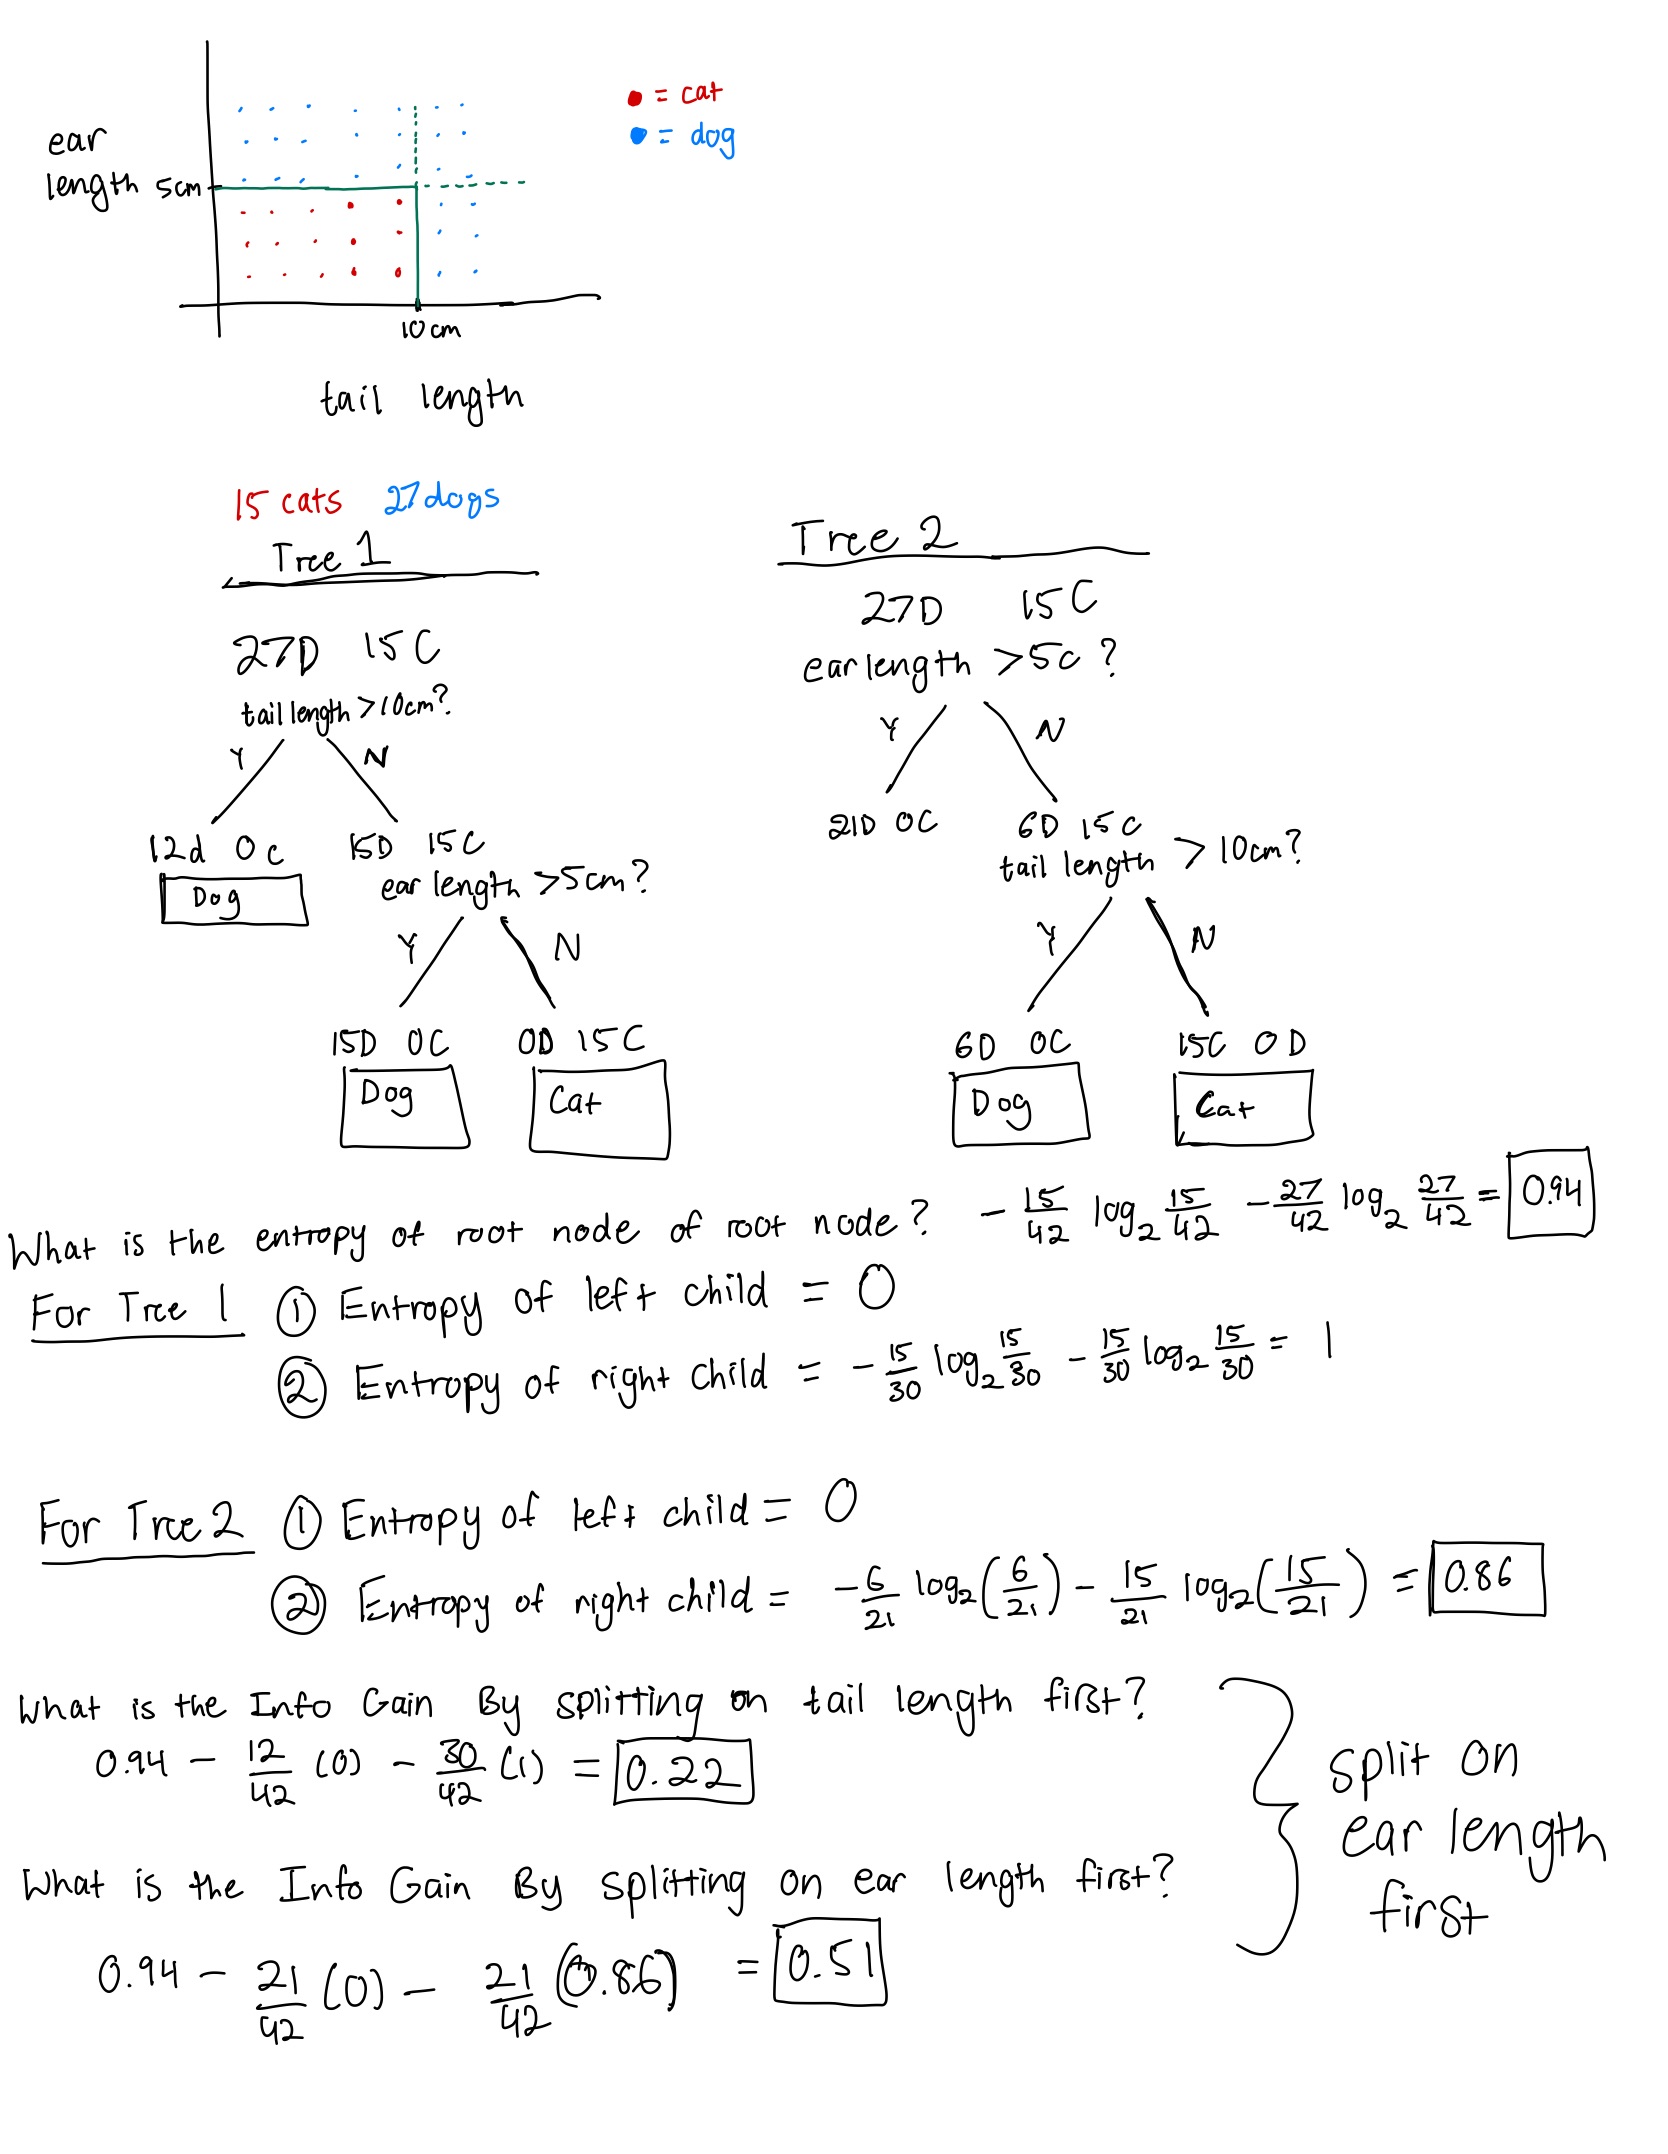 ● = cat
● = dog
ear
length 5cm
10cm
tail length
15 cats 27 dogs
Tree 1
27D 15C
tail length >10cm?
Y N
12d 0c
Dog
15D 15C
ear length >5cm?
Y N
15D 0C
Dog
0D 15C
Cat
Tree 2
27D 15C
ear length >5c?
Y N
21D 0C
6D 15C
tail length > 10cm?
Y N
6D 0C
Dog
15C 0D
Cat
What is the entropy of root node of root node? - 15/42 log₂ 15/42 - 27/42 log₂ 27/42 = 0.94
For Tree 1 ① Entropy of left child = 0
② Entropy of right child = - 15/30 log₂ 15/30 - 15/30 log₂ 15/30 = 1
For Tree 2 ① Entropy of left child = 0
② Entropy of right child = - 6/21 log₂(6/21) - 15/21 log₂(15/21) = 0.86
What is the Info Gain By splitting on tail length first?
0.94 - 12/42 (0) - 30/42 (1) = 0.22
What is the Info Gain By splitting on ear length first?
0.94 - 21/42 (0) - 21/42 (0.86) = 0.51
split on
ear length
first